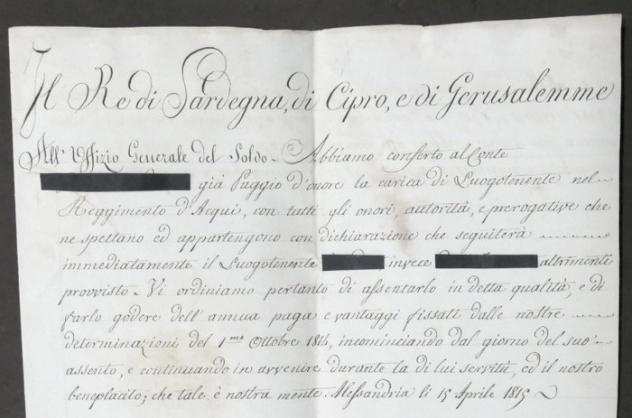 Il Re di Sardegna, di Cipro, e di Gerusalemme
All' Uffizio Generale del Soldo - Abbiamo conferto al Conte
già Paggio d'onore la carica di Luogotenente nel
Reggimento d'Acqui, con tutti gli onori, autorità, e prerogative che
ne spettano ed appartengono con dichiarazione che seguiterà
immediatamente il Luogotenente invece altrimenti
provvisto - Vi ordiniamo pertanto di assentarlo in detta qualità, e di
farlo godere dell' annua paga e vantaggi fissati dalle nostre
determinazioni del 1.mo Ottobre 1814, incominciando dal giorno del suo
assento, e continuando in avvenire durante la di lui servitù, ed il nostro
beneplacito; che tale è nostra mente. Alessandria li 15 Aprile 1815